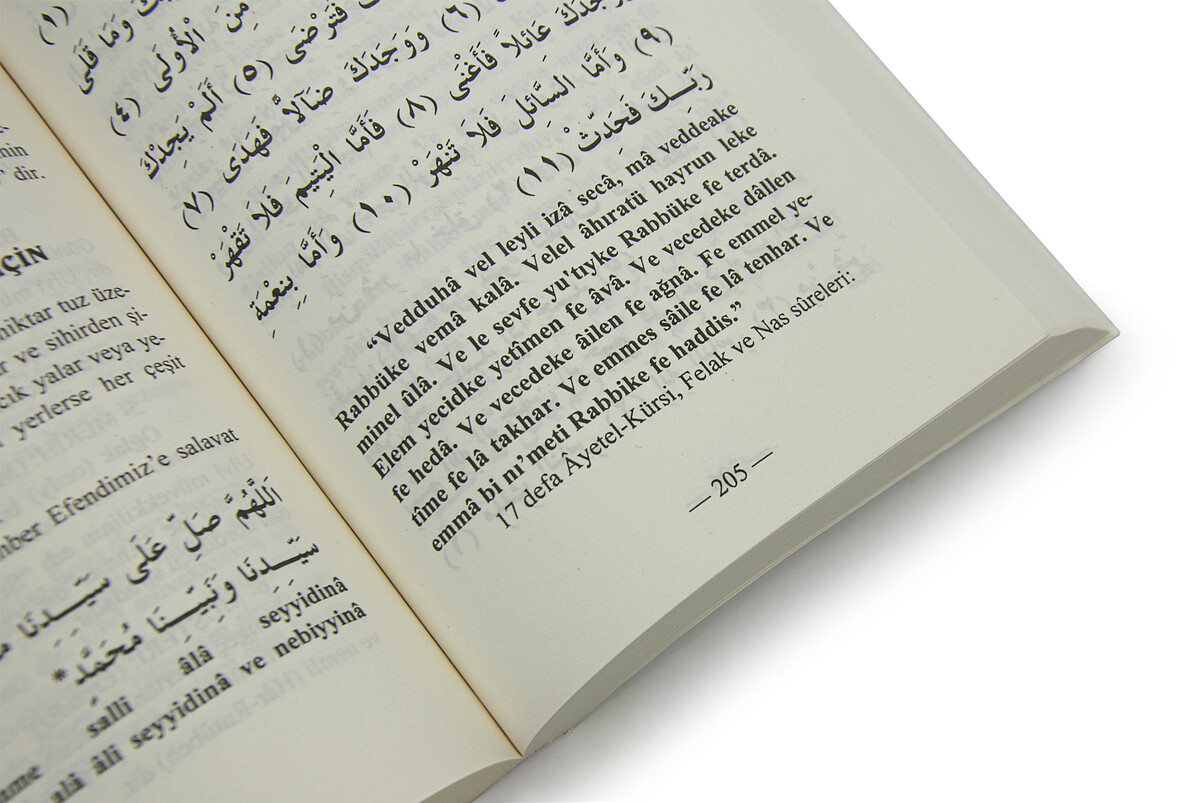 نين
nin
dir.
ÇİN
miktar tuz üze-
ve sihirden şi-
yalar veya ye-
yerlerse her çeşit
Efendimiz'e salavat
اَللّٰهُمَّ صَلِّ عَلَى سَيِّدِنَا
سَيِّدِنَا وَنَبِيِّنَا مُحَمَّدٍ *
salli âlâ seyyidinâ
alâ âli seyyidinâ ve nebiyyinâ
وَمَا قَلَى (١)
مِنَ الْأُولَى (٤)
فَتَرْضَى (٥) أَلَمْ يَجِدْكَ
(٦) وَوَجَدَكَ ضَآلاًّ فَهَدَى (٧)
عَائِلاً فَأَغْنَى (٨) فَأَمَّا الْيَتِيمَ فَلَا تَقْهَرْ
(٩) وَأَمَّا السَّائِلَ فَلَا تَنْهَرْ (١٠) وَأَمَّا بِنِعْمَةِ
رَبِّكَ فَحَدِّثْ (١١)
“Vedduhâ vel leyli izâ secâ, mâ veddeake
Rabbüke vemâ kalâ. Velel âhıratü hayrun leke
minel ûlâ. Ve le sevfe yu'tıyke Rabbüke fe terdâ.
Elem yecidke yetîmen fe âvâ. Ve vecedeke dâllen
fe hedâ. Ve vecedeke âilen fe ağnâ. Fe emmel ye-
tîme fe lâ takhar. Ve emmes sâile fe lâ tenhar. Ve
emmâ bi nı'meti Rabbike fe haddis.”
17 defa Âyetel-Kürsi, Felak ve Nas sûreleri:
— 205 —